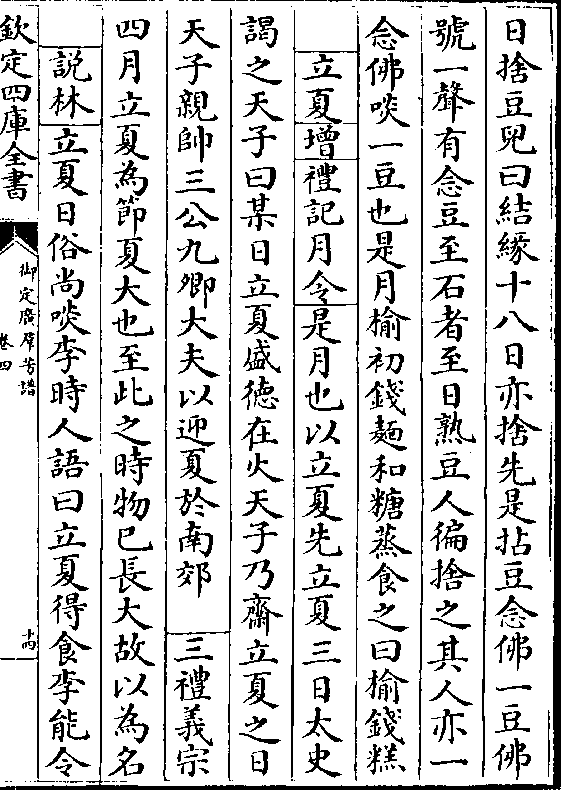 日捨豆兒曰結緣十八日亦捨先是拈豆念佛一豆佛
號一聲有念豆至石者至日熟豆人徧捨之其人亦一
念佛啖一豆也是月榆初錢麵和糖蒸食之曰榆錢糕
立夏增禮記月令是月也以立夏先立夏三日太史
謁之天子曰某日立夏盛德在火天子乃齋立夏之日
天子親帥三公九卿大夫以迎夏於南郊 三禮義宗
四月立夏為節夏大也至此之時物已長大故以為名
説林立夏日俗尚啖李時人語曰立夏得食李能令
欽定四庫全書
御定廣羣芳譜
卷四
十四